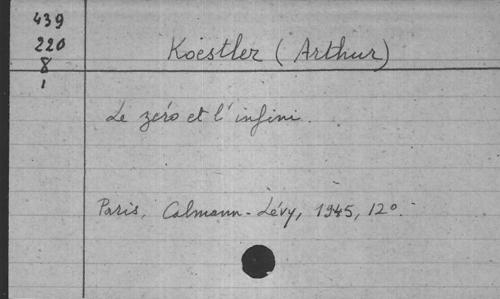 439
220
8
1
Koestler (Arthur)
Le zéro et l'infini.
Paris, Calmann-Lévy, 1945, 12°.